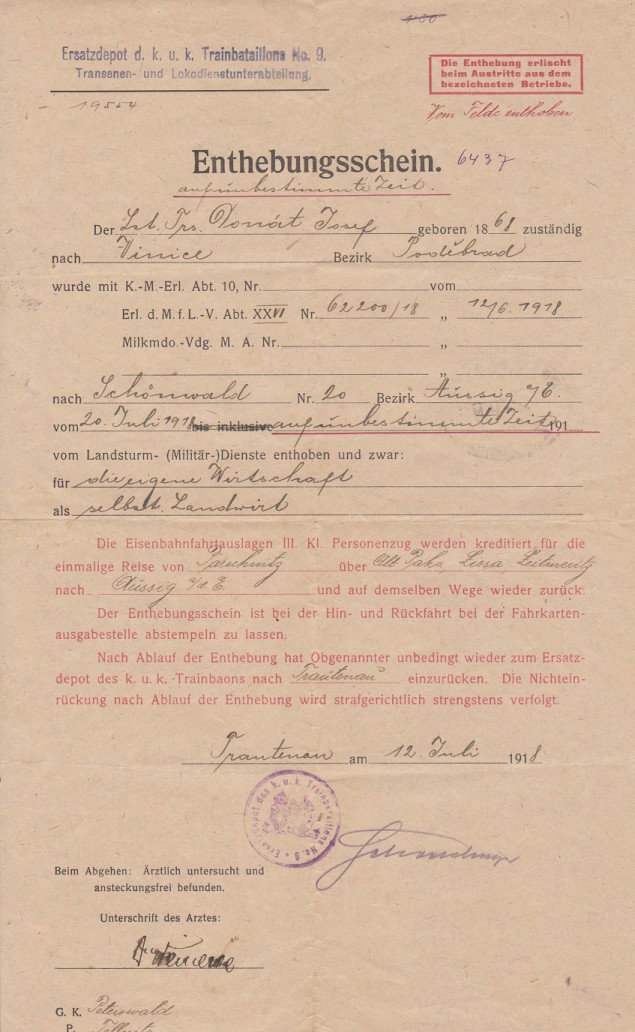 Ersatzdepot d. k. u. k. Trainbataillons No. 9.
Transenen- und Lokodienstunterabteilung.
Die Enthebung erlischt
beim Austritte aus dem
bezeichneten Betriebe.
19554
Vom Felde enthoben
Enthebungsschein. 6437
auf unbestimmte Zeit.
Der Lst. Trs. Donát Josef geboren 1868 zuständig
nach Vinice Bezirk Poděbrad
wurde mit K.-M.-Erl. Abt. 10, Nr. vom
Erl. d. M. f. L.-V. Abt. XXVI Nr. 62200/18 „ 12/6. 1918
Milkmdo.-Vdg. M. A. Nr. „
„
nach Schönwald Nr. 20 Bezirk Aussig a/E.
vom 20. Juli 1918 bis inklusive auf unbestimmte Zeit 191
vom Landsturm- (Militär-)Dienste enthoben und zwar:
für die eigene Wirtschaft
als selbst. Landwirt
Die Eisenbahnfahrtauslagen III. Kl. Personenzug werden kreditiert für die
einmalige Reise von Parschnitz über Alt Paka, Lissa, Leitmeritz
nach Aussig a/d E. und auf demselben Wege wieder zurück.
Der Enthebungsschein ist bei der Hin- und Rückfahrt bei der Fahrkarten-
ausgabestelle abstempeln zu lassen.
Nach Ablauf der Enthebung hat Obgenannter unbedingt wieder zum Ersatz-
depot des k. u. k. Trainbaons nach Trautenau einzurücken. Die Nichtein-
rückung nach Ablauf der Enthebung wird strafgerichtlich strengstens verfolgt.
Trautenau am 12. Juli 1918
Ersatzdepot des k. u. k. Trainbataillons No. 9
Beim Abgehen: Ärztlich untersucht und
ansteckungsfrei befunden.
Unterschrift des Arztes:
G. K. Peterswald
P. Tellnitz